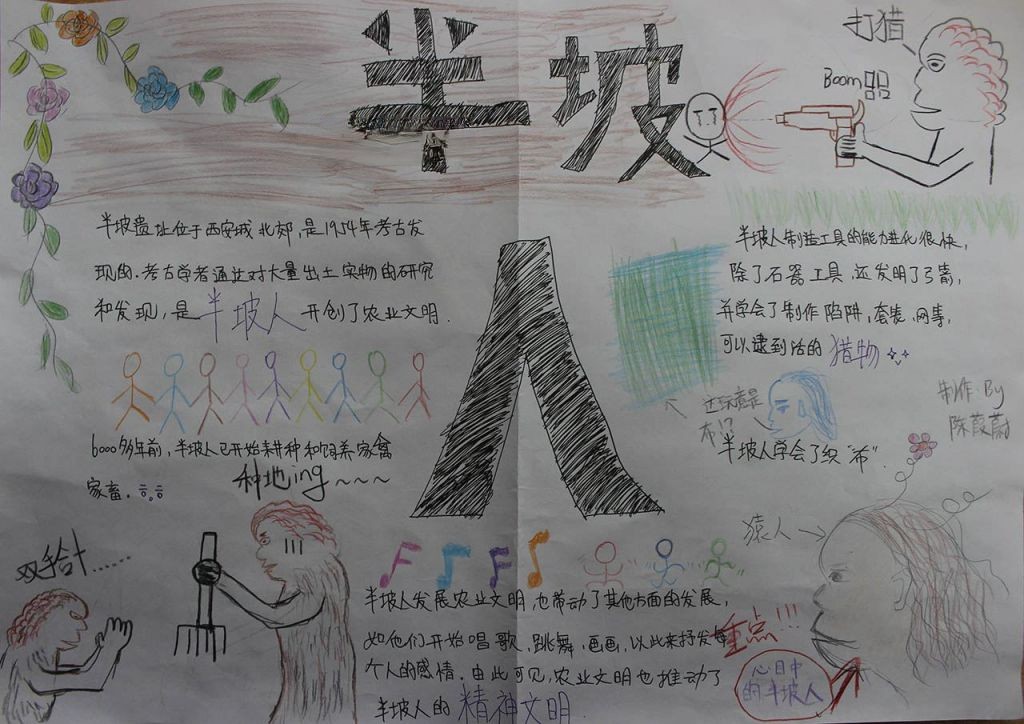 半坡
人
打猎
Boom
半坡遗址位于西安城北郊,是1954年考古发
现的.考古学者通过对大量出土实物的研究
和发现,是半坡人开创了农业文明.
半坡人制造工具的能力进化很快,
除了石器工具,还发明了弓箭,
并学会了制作陷阱,套装、网事,
可以逮到活的猎物
这玩意是
布!?
半坡人学会了织“布”.
制作 By
陈葭蔚
6000多年前,半坡人已开始耕种和饲养家禽
家畜.
种地ing~~~
双给ㄐ……
猿人
半坡人发展农业文明,也带动了其他方面的发展,
如他们开始唱歌、跳舞、画画,以此来抒发每
个人的感情.由此可见,农业文明也推动了
半坡人的精神文明.
重点!!!
心目中
的半坡人